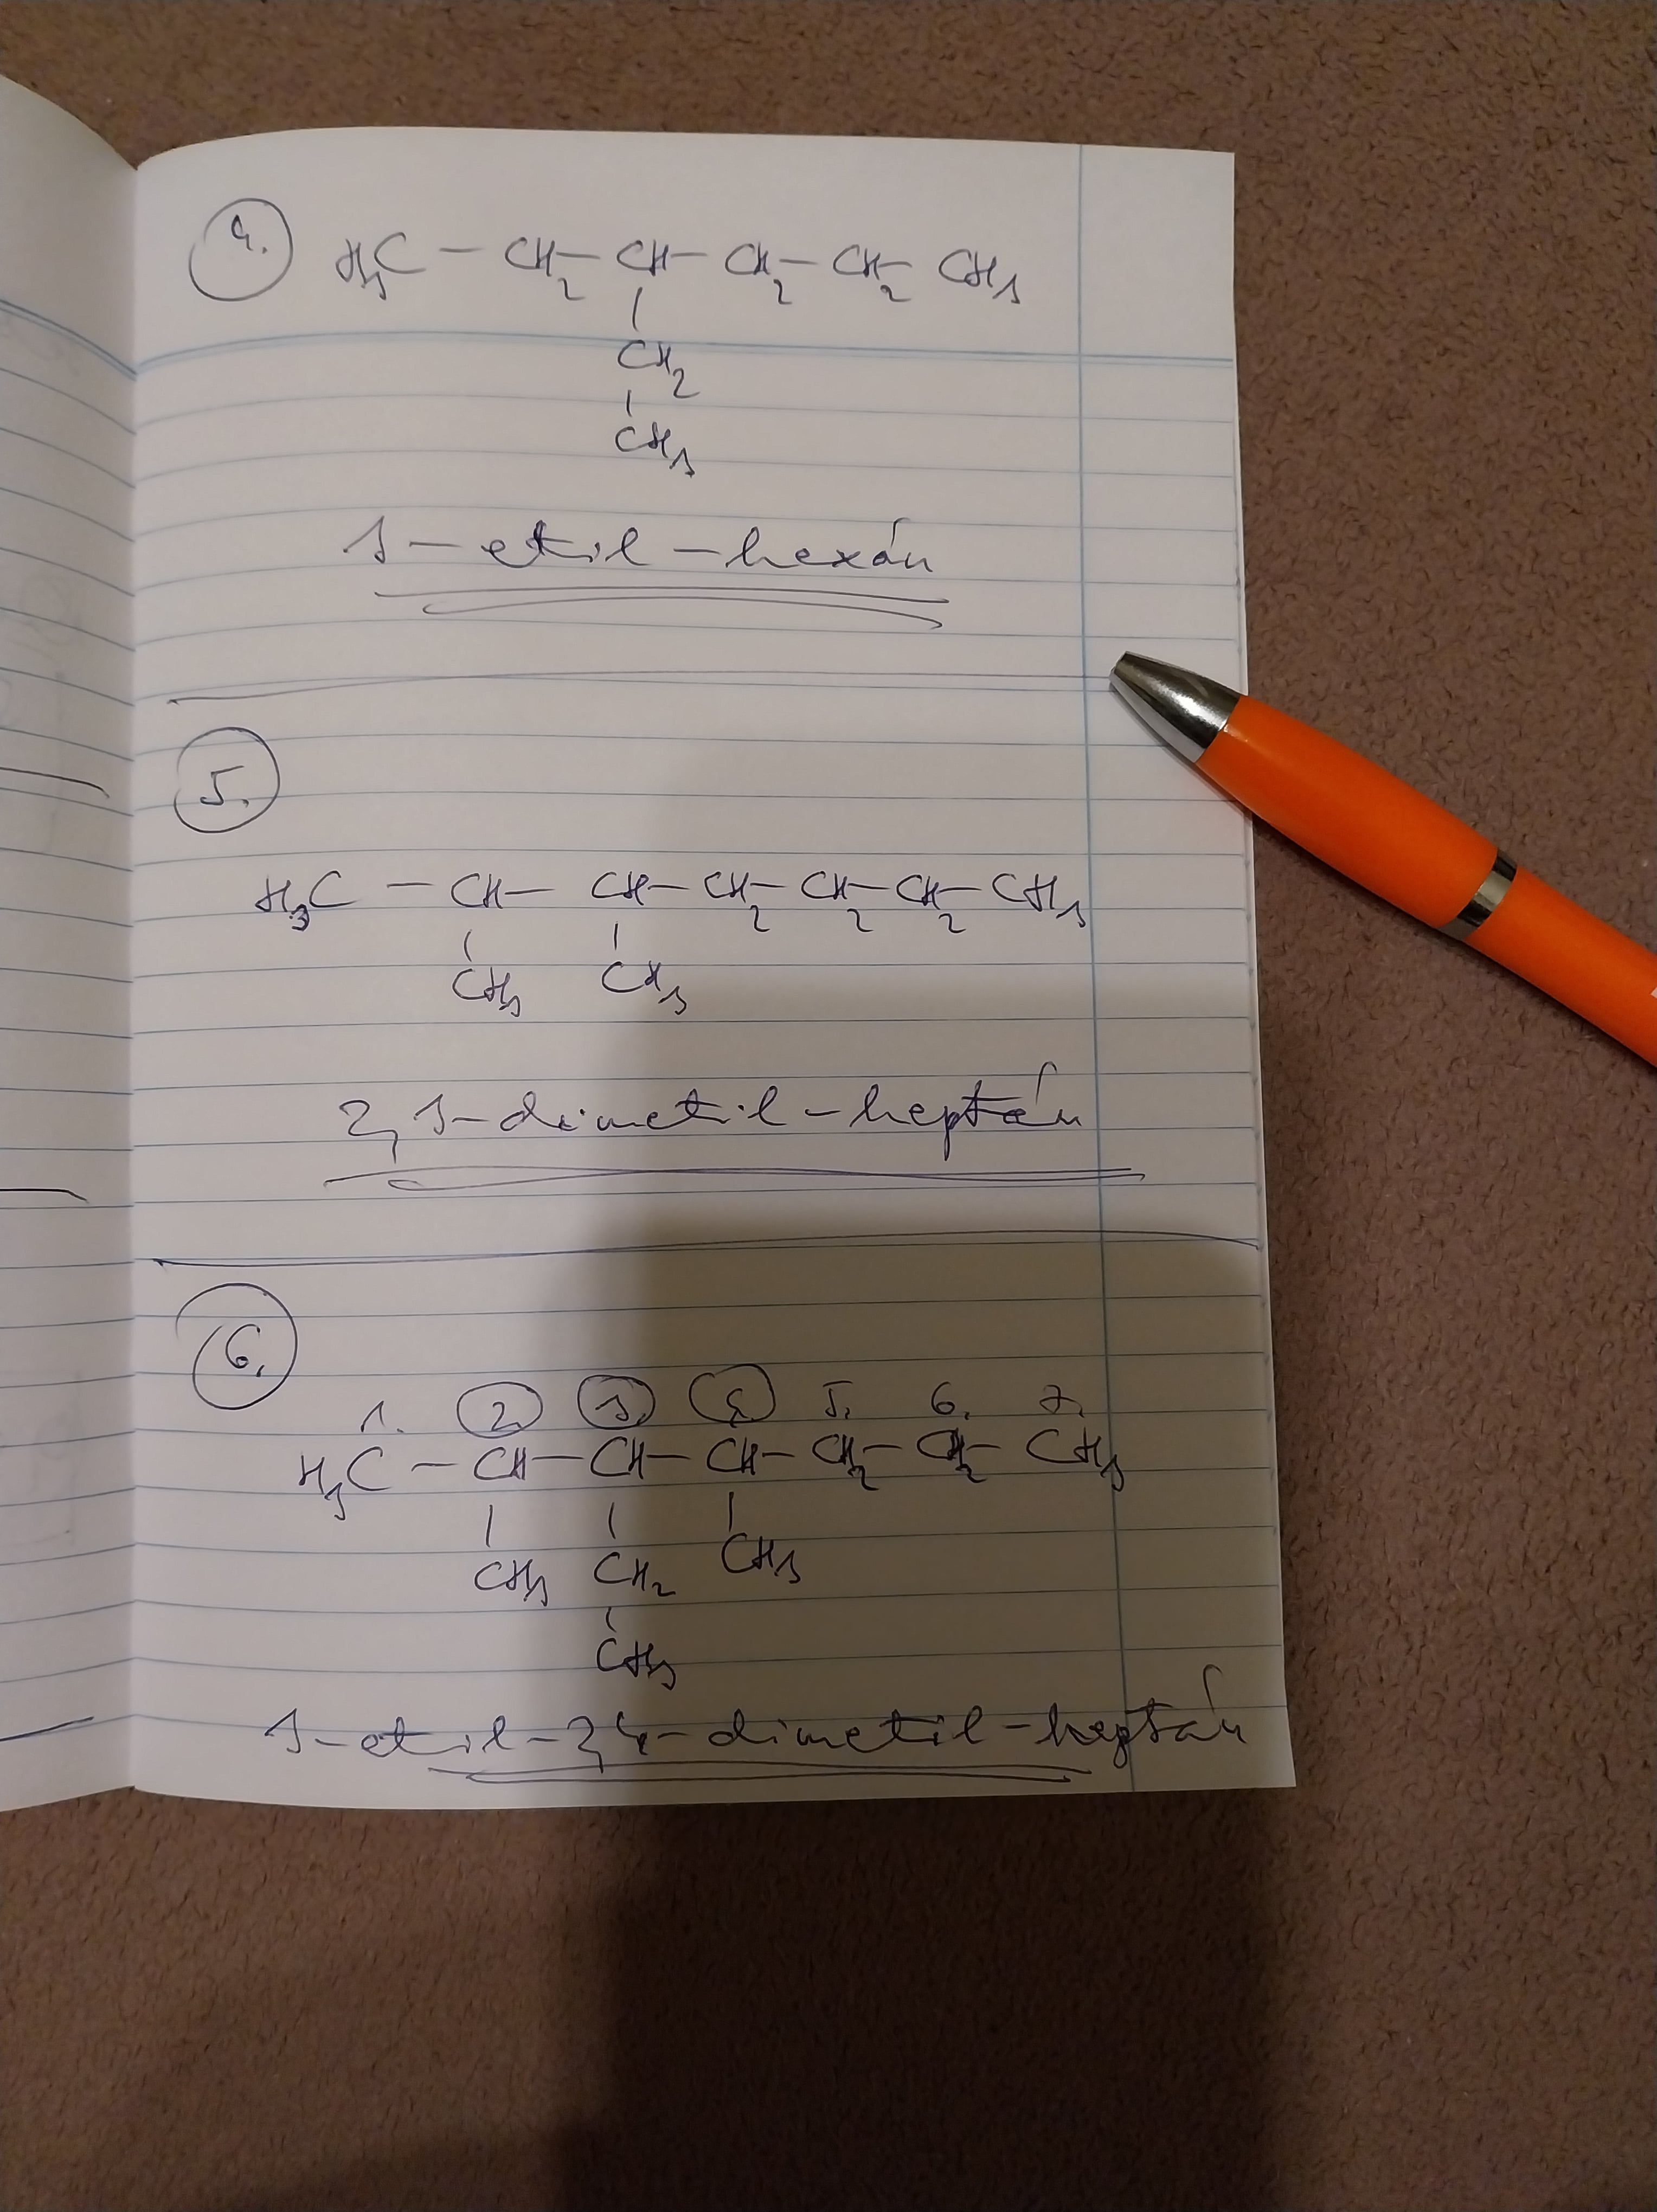 4.
H₃C – CH₂ – CH – CH₂ – CH₂ – CH₃
|
CH₂
|
CH₃
3-etil-hexán
5.
H₃C – CH – CH – CH₂ – CH₂ – CH₂ – CH₃
| |
CH₃ CH₃
2,3-dimetil-heptán
6.
1. 2. 3. 4. 5. 6. 7.
H₃C – CH – CH – CH – CH₂ – CH₂ – CH₃
| | |
CH₃ CH₂ CH₃
|
CH₃
3-etil-2,4-dimetil-heptán